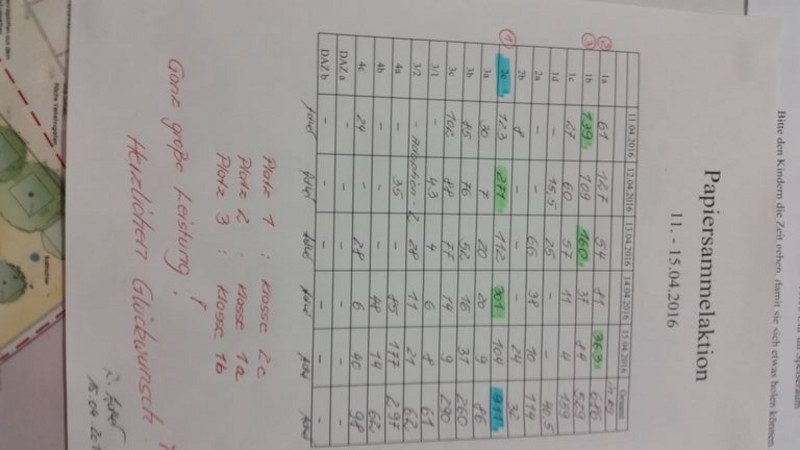 Bitte den Kindern die Zeit geben, damit sie sich etwas holen können.
Papiersammelaktion
11. - 15.04.2016
11.04.2016 12.04.2016 13.04.2016 14.04.2016 15.04.2016 Gesamt
2 1a 61 127 54 81 363 686
3 1b 139 109 160 37 84 529
1c 27 60 57 11 4 159
1d - 15,5 25 - - 40,5
2a - - 66 38 10 114
2b 8 - - - 24 32
1 2c 123 271 112 301 104 911
3a 30 7 20 20 9 86
3b 85 76 52 16 31 260
3c 102 88 77 14 9 290
3/1 - 43 4 6 8 61
3/2 2 28 11 21 62
4a - 35 - 85 177 297
4b - - - 48 14 62
4c 24 - 28 6 40 98
DAZ a - - - - - -
DAZ b - - - - - -
Platz 1 : Klasse 2c
Platz 2 : Klasse 1a
Platz 3 : Klasse 1b
Ganz große Leistung !
Herzlichen Glückwunsch !